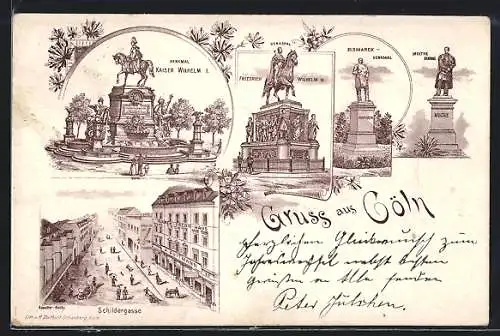 DENKMAL
KAISER WILHELM I.
DENKMAL
FRIEDRICH WILHELM III
BISMARCK-
DENKMAL
MOLTKE
DENKMAL
MOLTKE
Gruss aus Cöln
herzlichen Glückwunsch zum
Jahreswechsel nebst besten
Grüßen an Alle senden
Peter
Schildergasse